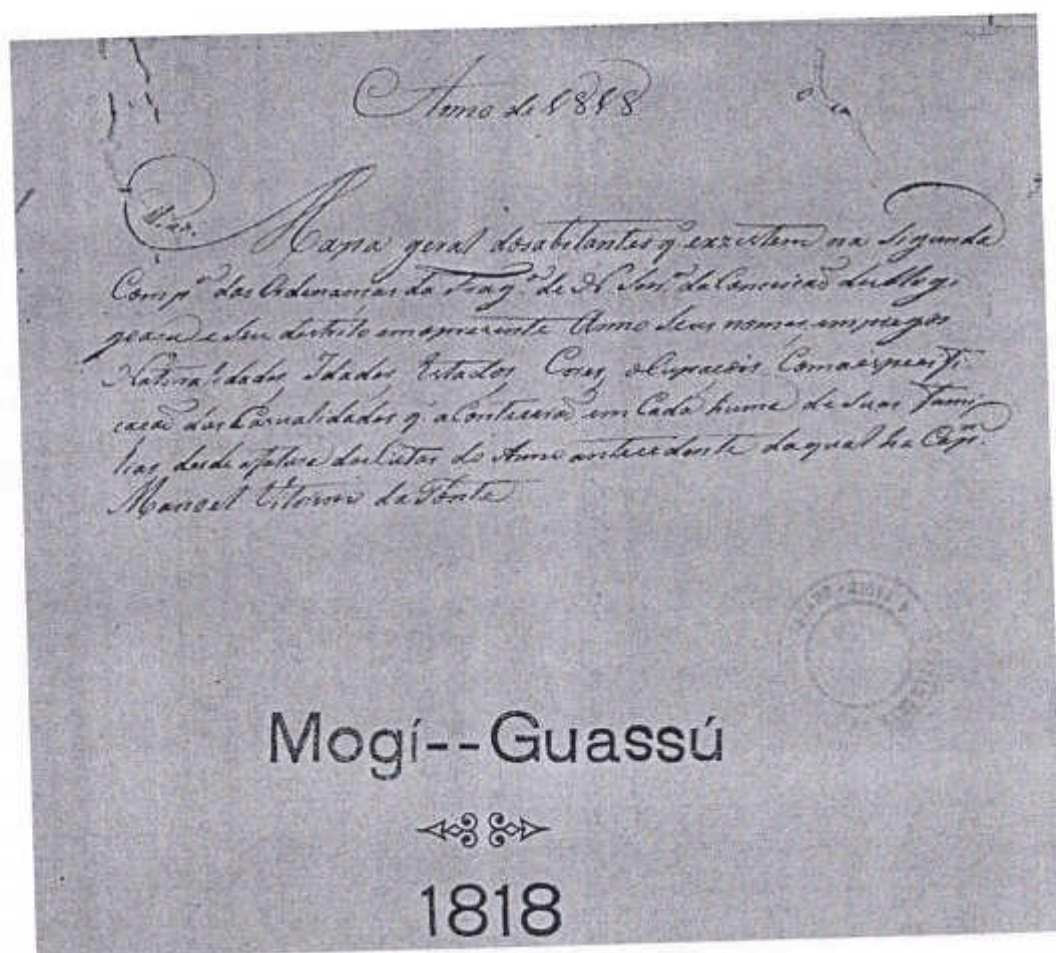 Anno de 1818
Mapa geral dosabitantes q̃ exzistem na Segunda
Comp.ª das Ordenansas da Freg.ª de N Snr.ª da Conceicaõ de Mogi
goasu e Seu destrito em oprezente Anno Seus nomes, empregos
Naturalidades, Idades, Estados, Cores, oCupacois Comaespecifi-
cacaõ das Cazualidades q̃ aContecera em Cada huma de Suas Fami-
lias, desde afatura das Listas do Anno antecedente da qual he Cap.m
Manoel da Ponte
Mogí--Guassú
1818